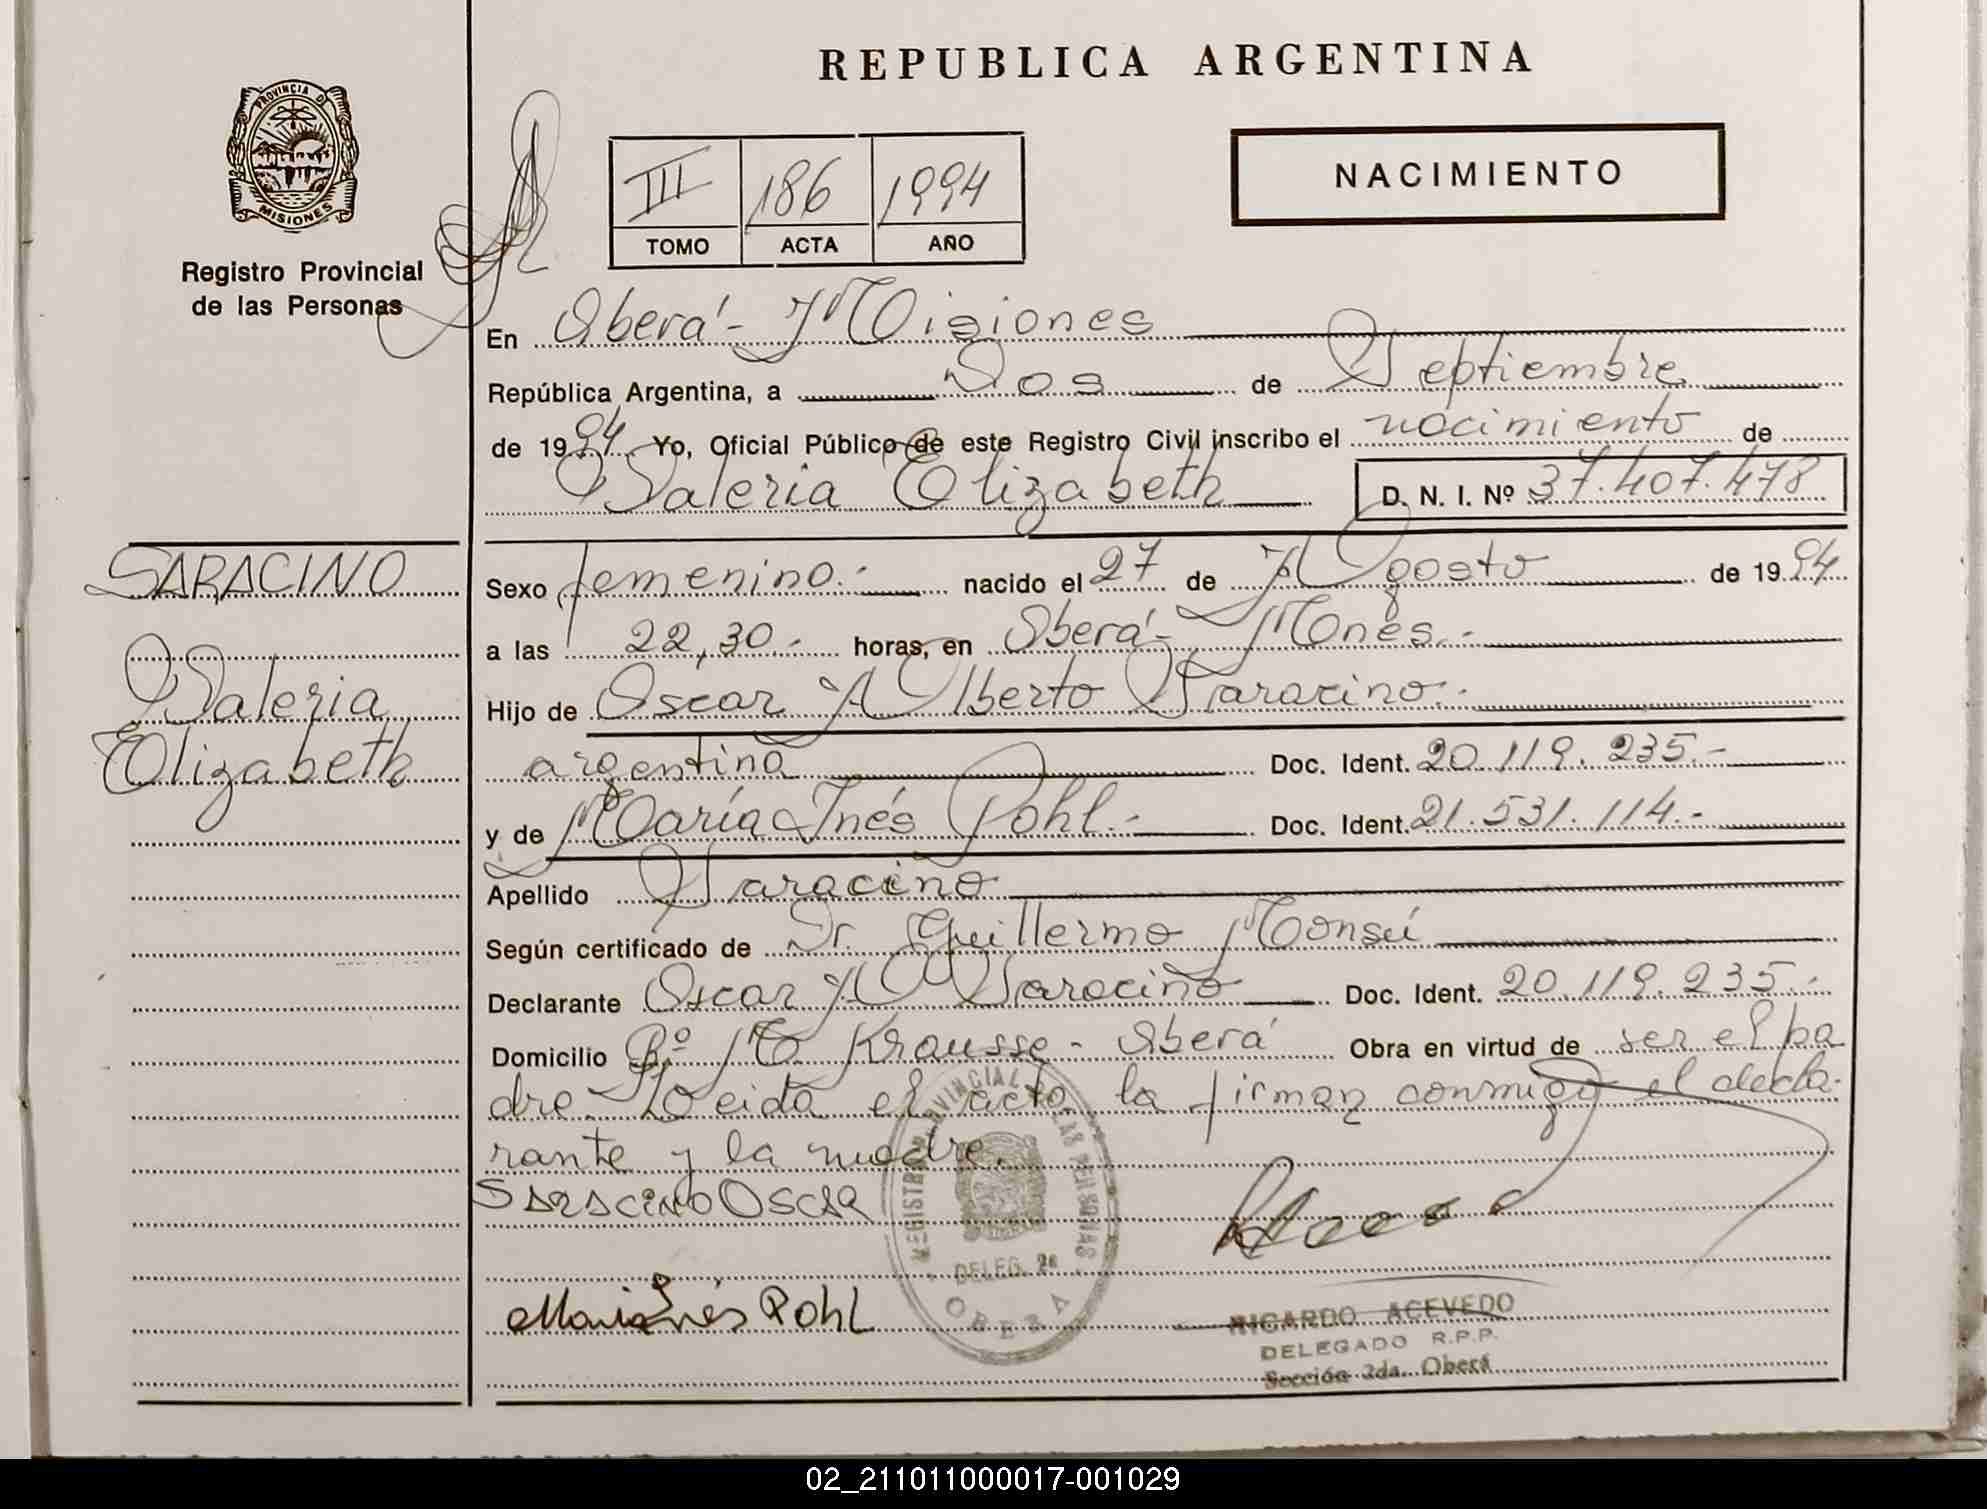 REPUBLICA ARGENTINA
PROVINCIA D
MISIONES
Registro Provincial
de las Personas
III 186 1994
TOMO ACTA AÑO
NACIMIENTO
En Oberá - Misiones
República Argentina, a Dos de Septiembre
de 1994 Yo, Oficial Público de este Registro Civil inscribo el nacimiento de
Valeria Elizabeth D. N. I. Nº 37.407.478
SARACINO
Valeria
Elizabeth
Sexo femenino.- nacido el 27 de Agosto de 1994
a las 22,30.- horas, en Oberá - Mnes.-
Hijo de Oscar Alberto Saracino.-
argentina Doc. Ident. 20.119.235.-
y de María Inés Pohl.- Doc. Ident. 21.531.114.-
Apellido Saracino
Según certificado de Dr. Guillermo Monsú
Declarante Oscar A. Saracino Doc. Ident. 20.119.235.-
Domicilio Bº Krausse - Oberá Obra en virtud de ser el pa
dre. Leida el acta la firman conmigo el decla-
rante y la madre.
SARACINO OSCAR
Maria Inés Pohl
REGISTRO PROVINCIAL DE LAS PERSONAS
DELEG. 2a
OBERA
RICARDO ACEVEDO
DELEGADO R.P.P.
Sección 2da. Oberá
02_211011000017-001029